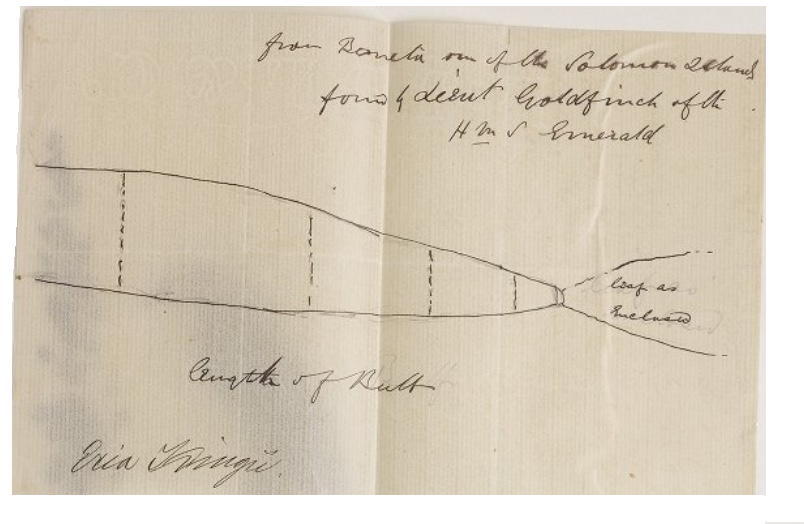 from one of the Solomon Islands
found by Lieut Goldfinch of the
H M S Emerald
leaf as
Enclosed
length of Bulb
Eria